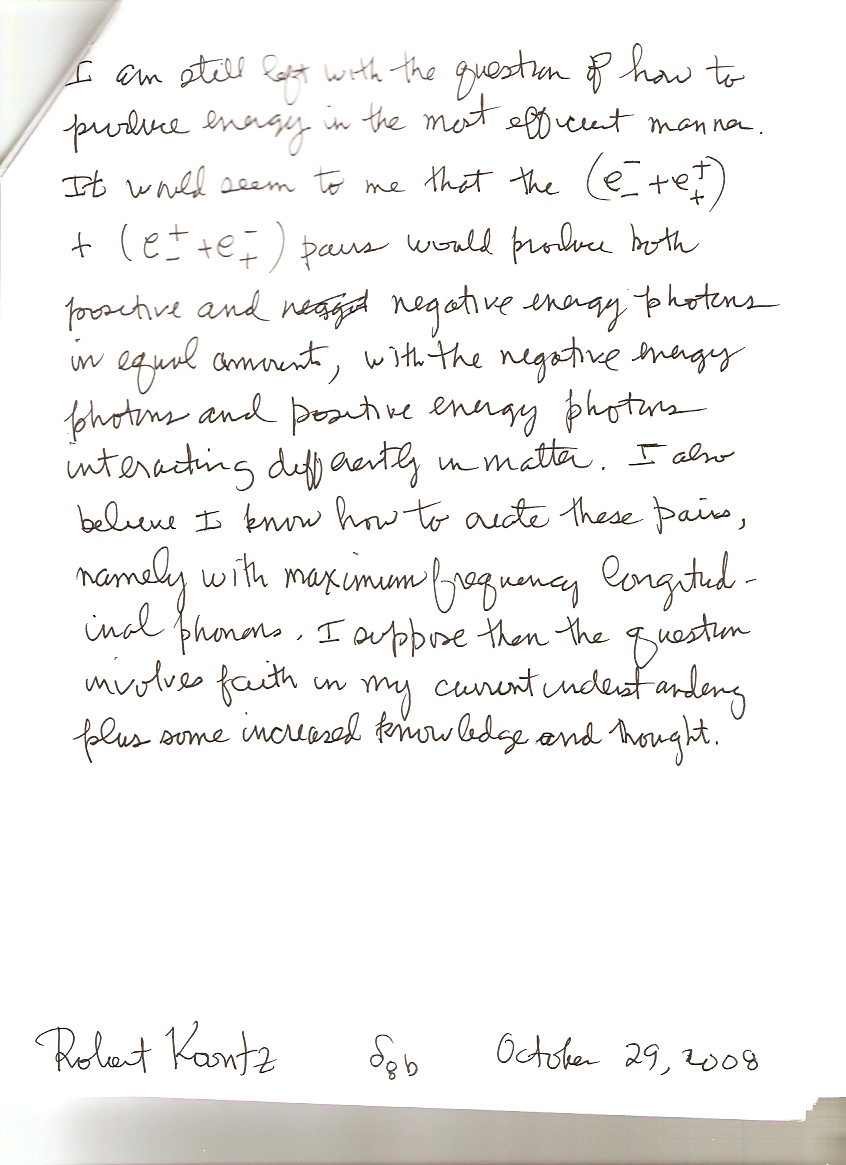 I am still left with the question of how to
produce energy in the most efficient manner.
It would seem to me that the (e⁻₋+e⁺₊)
+ (e⁺₋+e⁻₊) pairs would produce both
positive and negative energy photons
in equal amounts, with the negative energy
photons and positive energy photons
interacting differently in matter. I also
believe I know how to create these pairs,
namely with maximum frequency longitud-
inal phonons. I suppose then the question
involves faith in my current understanding
plus some increased knowledge and thought.
Robert October 29, 2008